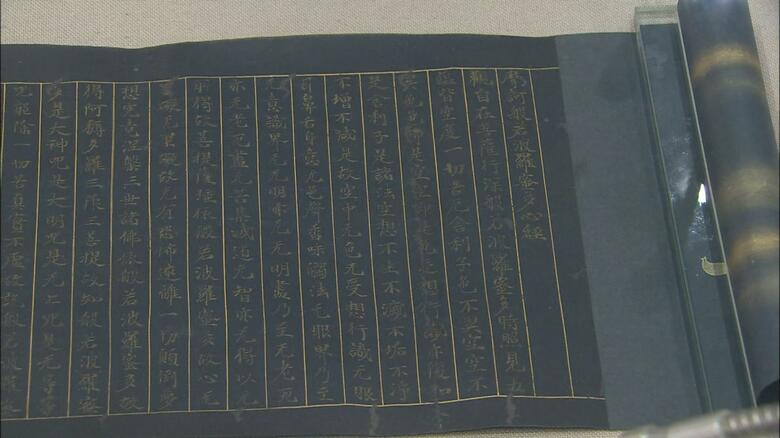 摩訶般若波羅蜜多心經
觀自在菩薩行深般若波羅蜜多時照見五
蘊皆空度一切苦厄舍利子色不異空空不
異色色即是空空即是色受想行識亦復如
是舍利子是諸法空想不生不滅不垢不淨
不增不減是故空中无色无受想行識无眼
耳鼻舌身意无色聲香味觸法无眼界乃至
无意識界无无明亦无无明盡乃至无老死
亦无老死盡无苦集滅道无智亦无得以无
所得故菩提薩埵依般若波羅蜜多故心无
罣礙无罣礙故无有恐怖遠離一切顛倒夢
想究竟涅槃三世諸佛依般若波羅蜜多故
得阿耨多羅三藐三菩提故知般若波羅蜜
多是大神咒是大明咒是无上咒是无等等
咒能除一切苦真實不虛故說般若波羅蜜